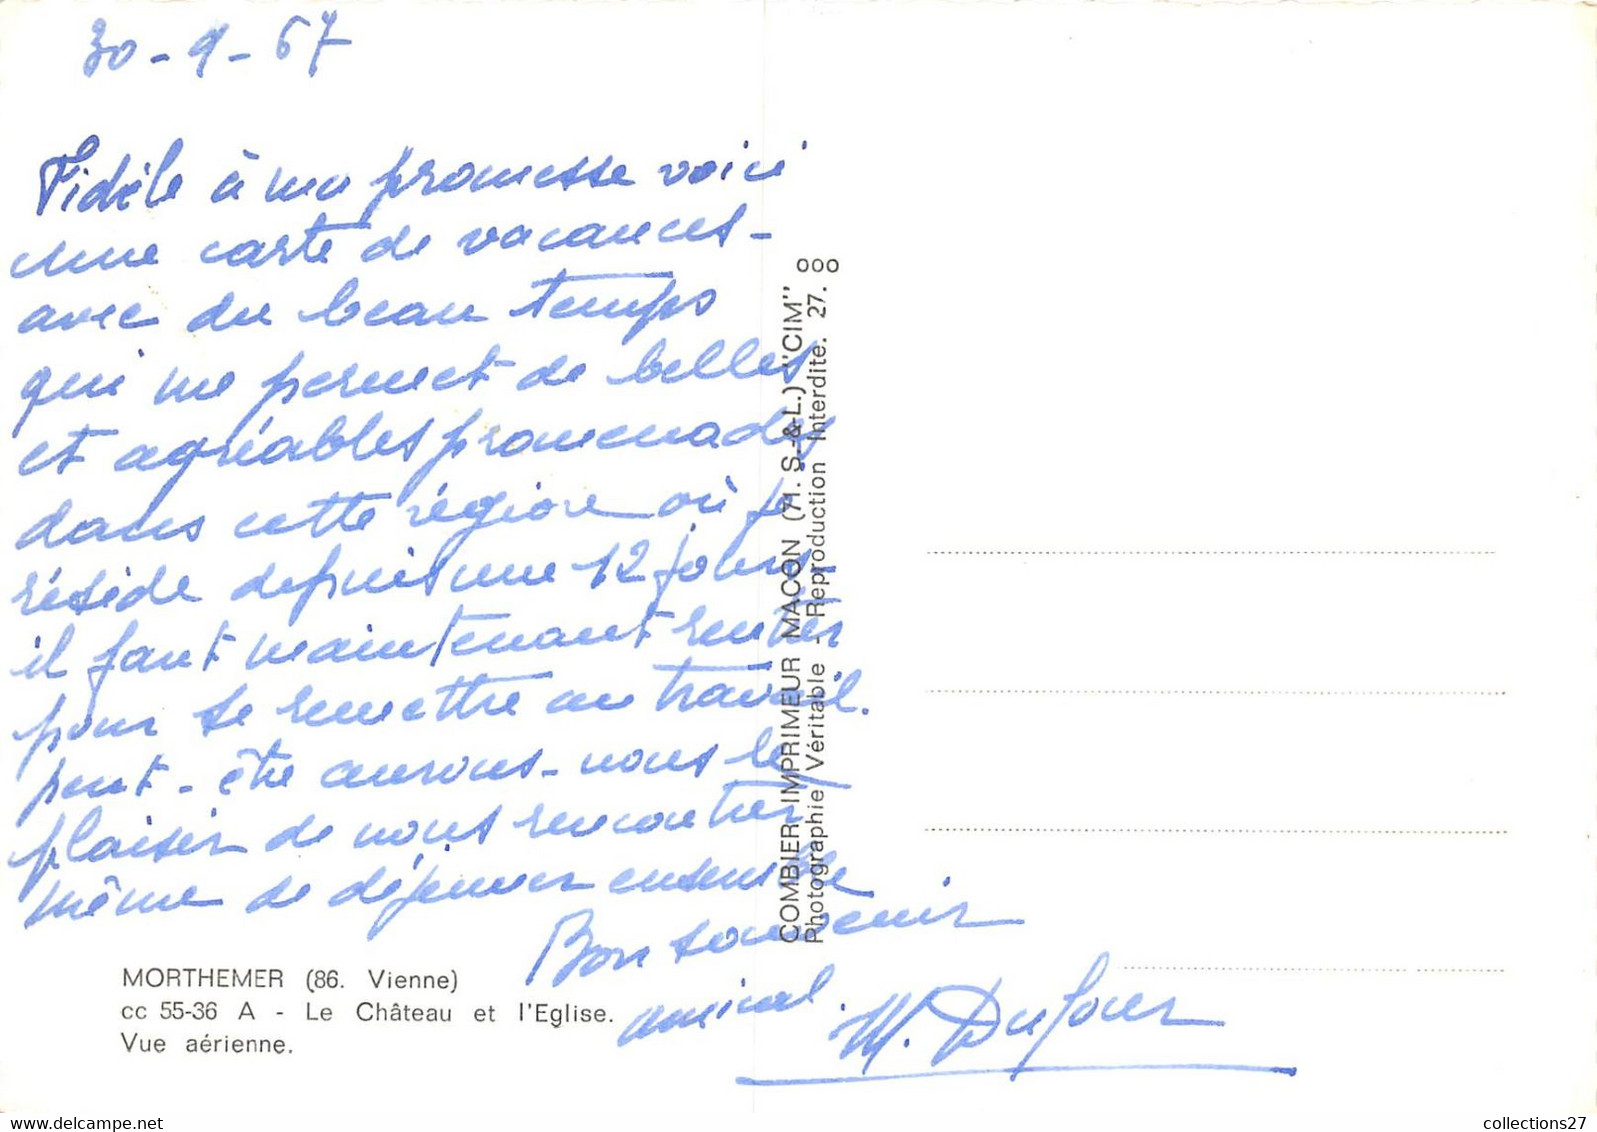 30-9-67
Fidèle à ma promesse voici
une carte de vacances-
avec du beau temps
qui me permet de belles
et agréables promenades
dans cette région où je
réside depuis une 12 jours-
il faut maintenant rentrer
pour se remettre au travail.
peut-être aurons-nous le
plaisir de nous rencontrer
même de déjeuner ensemble
Bon souvenir
amical.
M. Dufour
MORTHEMER (86. Vienne)
cc 55-36 A - Le Château et l'Eglise.
Vue aérienne.
COMBIER IMPRIMEUR MACON (71. S.-&-L.) "CIM"
Photographie Véritable - Reproduction Interdite. 27.
collections27